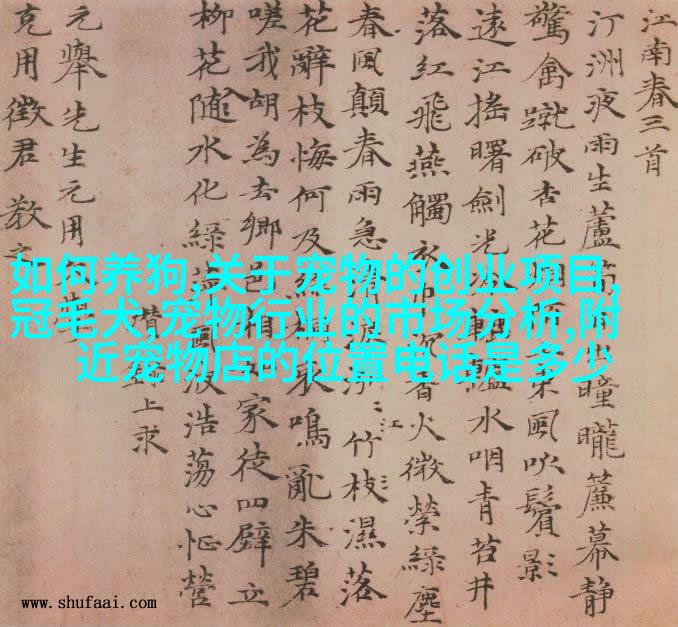 江南春三首
汀洲夜雨生蘆出曈曨簾幕靜
驚禽蹴破杏花東風吹鬢影
遠江搖曙劍光水咽青苔井
落紅飛燕觸衣香火微縈綠塵
春風顛春雨急江竹枝濕落
花辭枝悔何及鳴亂朱碧
嗟我胡為去鄉邑相家徒四壁立
柳花隨水化綠風波浩蕩心怔營
瓚上求
元舉先生元用
克用徵君教之
如何养狗,关于宠物的创业项目,
冠毛犬,宠物行业的市场分析,附
近宠物店的位置电话是多少
www.shufaai.com